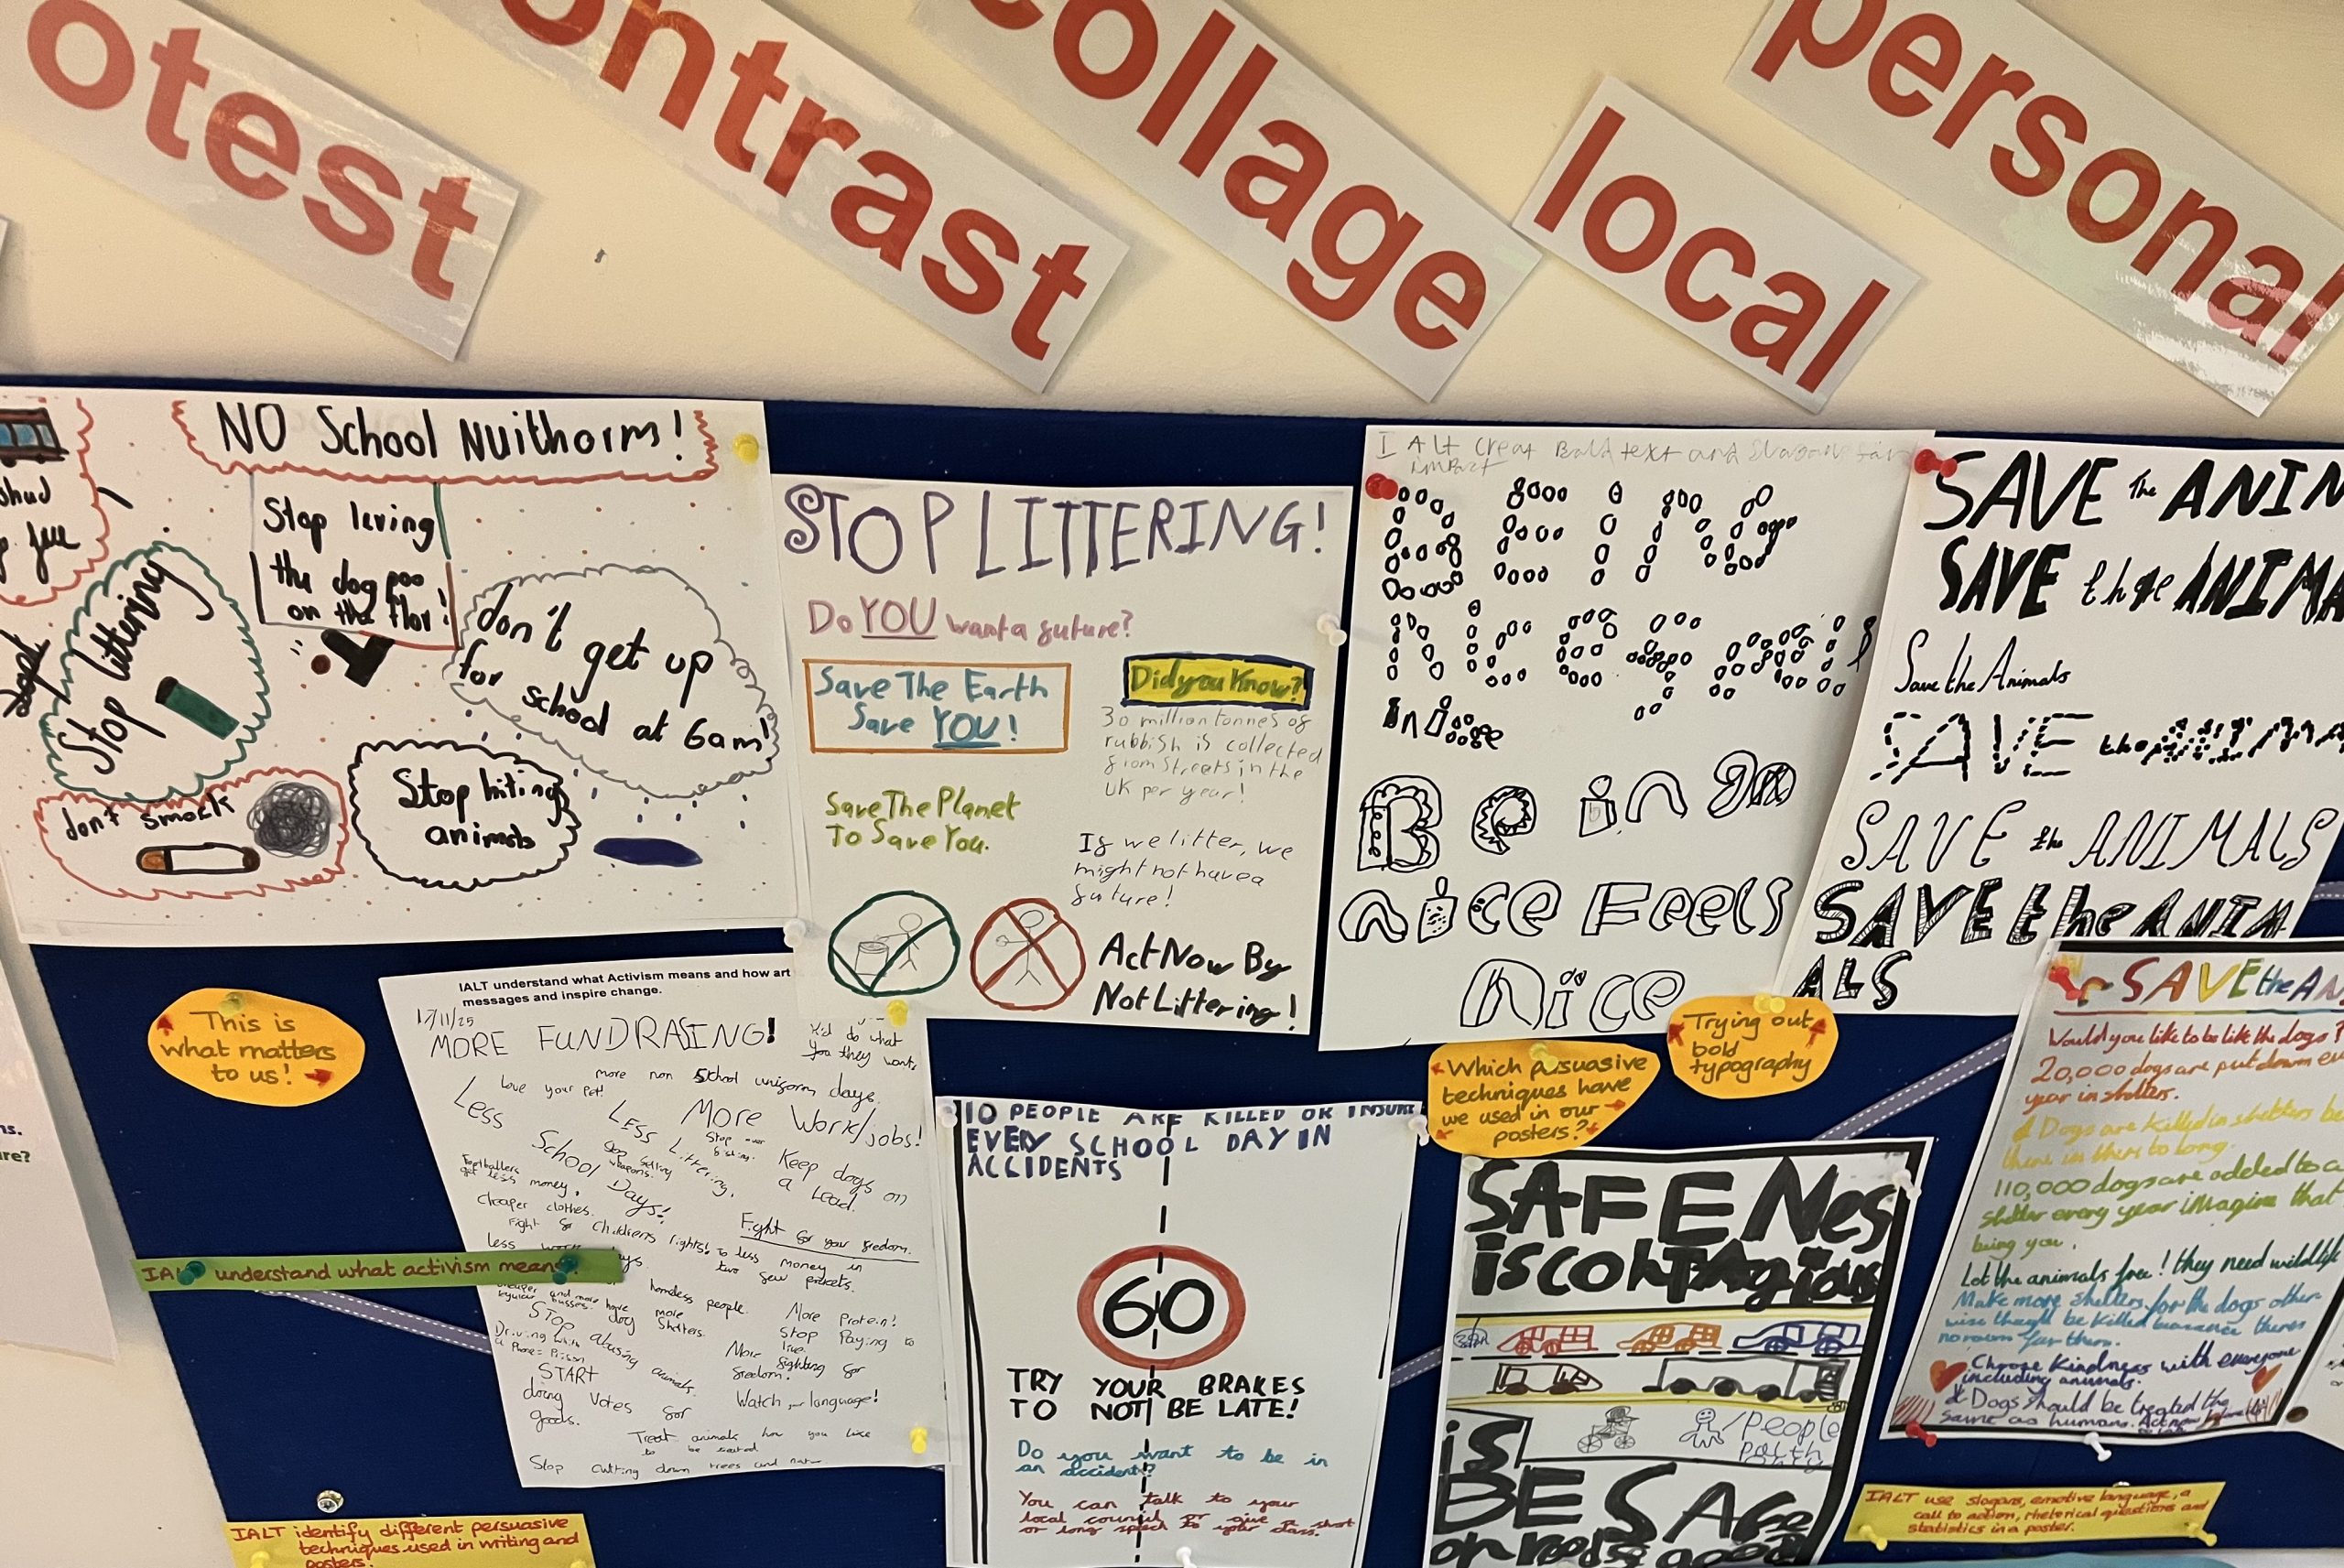 otest
ontrast
collage
local
personal
shud
NO School Nuithorm!
Stop leving
the dog poo
on the flor!
Stop littering
don't get up
for school at 6am!
don't smock
Stop hiting
animals
STOP LITTERING!
Do YOU want a future?
Save The Earth
Save YOU!
Did you Know?
30 million tonnes of
rubbish is collected
from streets in the
UK per year!
Save The Planet
To Save You.
If we litter, we
might not have a
future!
Act Now By
Not Littering!
I ALt creat Bold text and Slogans for
impact
BEING
Nice feels
Be ing
nice Feels
nice
SAVE The ANIM
SAVE the ANIMA
Save the Animals
SAVE the
SAVE the ANIMALS
SAVE the ANIM
ALS
This is
what matters
to us!
IALT understand what Activism means and how art
messages and inspire change.
17/11/25
MORE FUNDRASING!
Kid do what
they want,
more non School uniform days.
Love your pet!
Less
School Days!
LESS Littering.
More Work/jobs!
Stop over
fishing.
Stop selling
weapons.
Keep dogs on
a lead.
Footballers
get less money.
cheaper clothes.
Fight for childrens rights!
Fight for your freedom.
to less money in
two few pockets.
less
homeless people.
have more
dog shelters.
More Protein!
Stop Paying to
live.
STOP abusing animals.
Driving with
a Phone = Prison
More fighting for
freedom!
START
doing Votes for
goods.
Watch your language!
Treat animals how you like
to be treated
Stop cutting down trees and
IALT understand what activism means.
IALT identify different persuasive
techniques used in writing and
posters.
10 PEOPLE ARE KILLED OR INSURE
EVERY SCHOOL DAY IN
ACCIDENTS
60
TRY YOUR BRAKES
TO NOT BE LATE!
Do you want to be in
an accident?
You can talk to your
local council or give a short
or long speech to your class.
Which persuasive
techniques have
we used in our
posters?
Trying out
bold
typography
SAFENes
is contagious
people
path
is
BE SAfe
SAVE the AN
Would you like to be like the dogs?
20,000 dogs are put down ev
year in shelters.
Dogs are killed in shelters be
there in thers to long.
110,000 dogs are added to a
shelter every year imagine that
being you.
Let the animals free! they need wildlife
Make more shelters for the dogs other-
wise they'll be killed becausee theres
no room for them.
Choose Kindness with everyone
including animals.
Dogs should be treated the
same as humans. Act now
IALT use slogans, emotive language, a
call to action, rhetorical questions and
statistics in a poster.